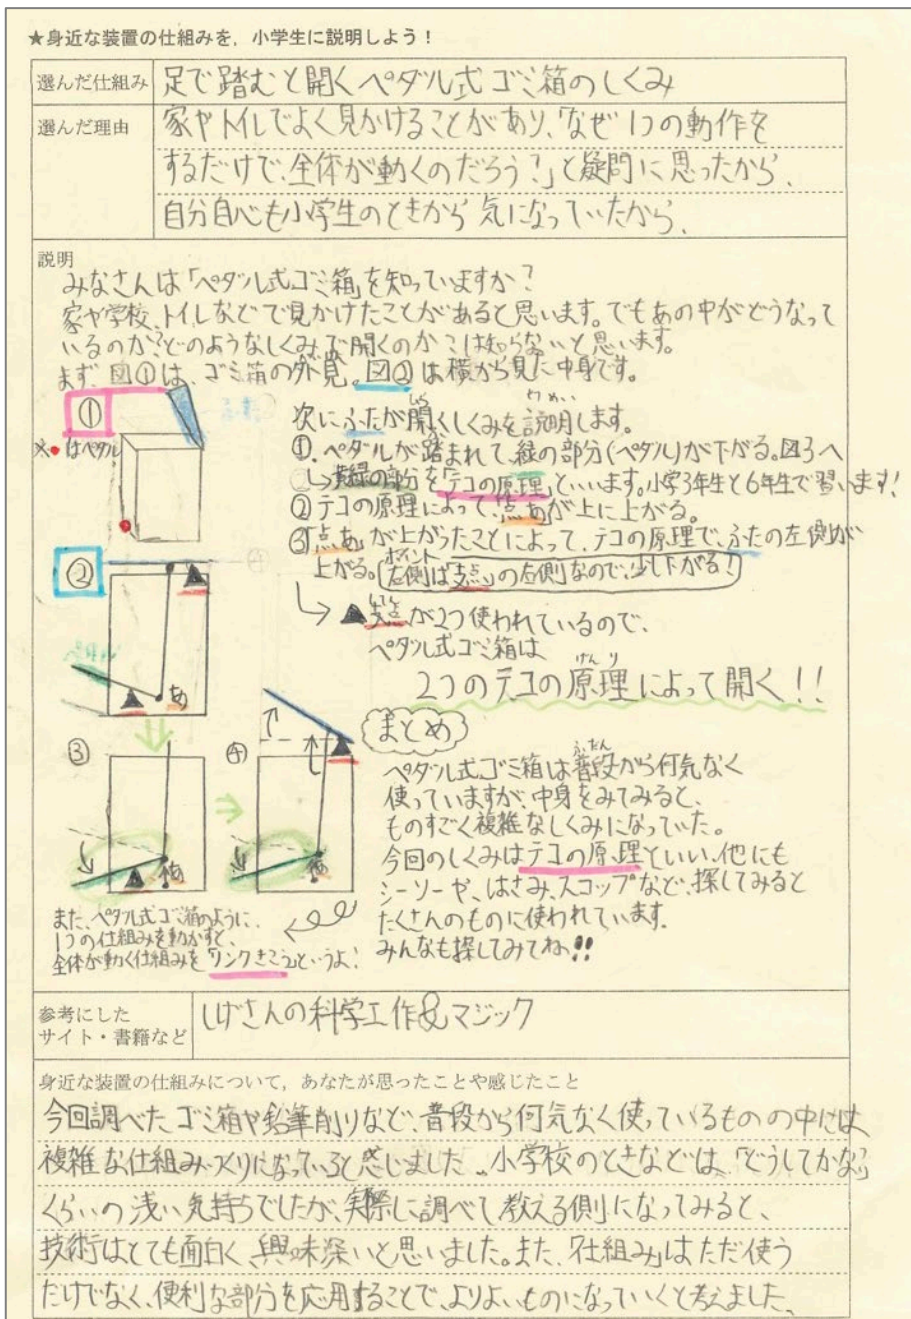 ★身近な装置の仕組みを，小学生に説明しよう！
選んだ仕組み
足で踏むと開くペダル式ゴミ箱のしくみ
選んだ理由
家やトイレでよく見かけることがあり、「なぜ1つの動作を
するだけで、全体が動くのだろう？」と疑問に思ったから、
自分自心も小学生のときから気になっていたから、
説明
みなさんは「ペダル式ゴミ箱」を知っていますか？
家や学校、トイレなどで見かけたことがあると思います。でもあの中がどうなって
いるのか？どのようなしくみで開くのか？は知らないと思います。
まず、図①は、ゴミ箱の外見。図②は横から見た中身です。
①
※●はペダル
次にふたが開くしくみを説明します。
①ペダルが踏まれて、緑の部分(ペダル)が下がる。図3へ
↳緑の部分を「テコの原理」といいます。小学3年生と6年生で習います！
②テコの原理によって、「点あ」が上に上がる。
③「点あ」が上がったことによって、テコの原理で、ふたの左側が
上がる。
ポイント
左側は「支点」の左側なので、少し下がる！
→▲支点が2つ使われているので、
ペダル式ゴミ箱は
2つのテコの原理によって開く!!
②
あ
③
あ
④
あ
まとめ
ペダル式ゴミ箱は普段から何気なく
使っていますが、中身をみてみると、
ものすごく複雑なしくみになっていた。
今回のしくみはテコの原理といい、他にも
シーソーや、はさみ、スコップなど、探してみると
たくさんのものに使われています。
みんなも探してみてね!!
また、ペダル式ゴミ箱のように、
1つの仕組みを動かすと、
全体が動く仕組みを「リンクきこう」というよ！
参考にした
サイト・書籍など
しげさんの科学工作&マジック
身近な装置の仕組みについて，あなたが思ったことや感じたこと
今回調べたゴミ箱や鉛筆削りなど、普段から何気なく使っているものの中には、
複雑な仕組みづくりになっていると感じました。小学校のときなどは、「どうしてかな」
くらいの浅い気持ちでしたが、実際に調べて教える側になってみると、
技術はとても面白く、興味深いと思いました。また、「仕組み」はただ使う
だけでなく、便利な部分を応用することで、よりよいものになっていくと考えました、